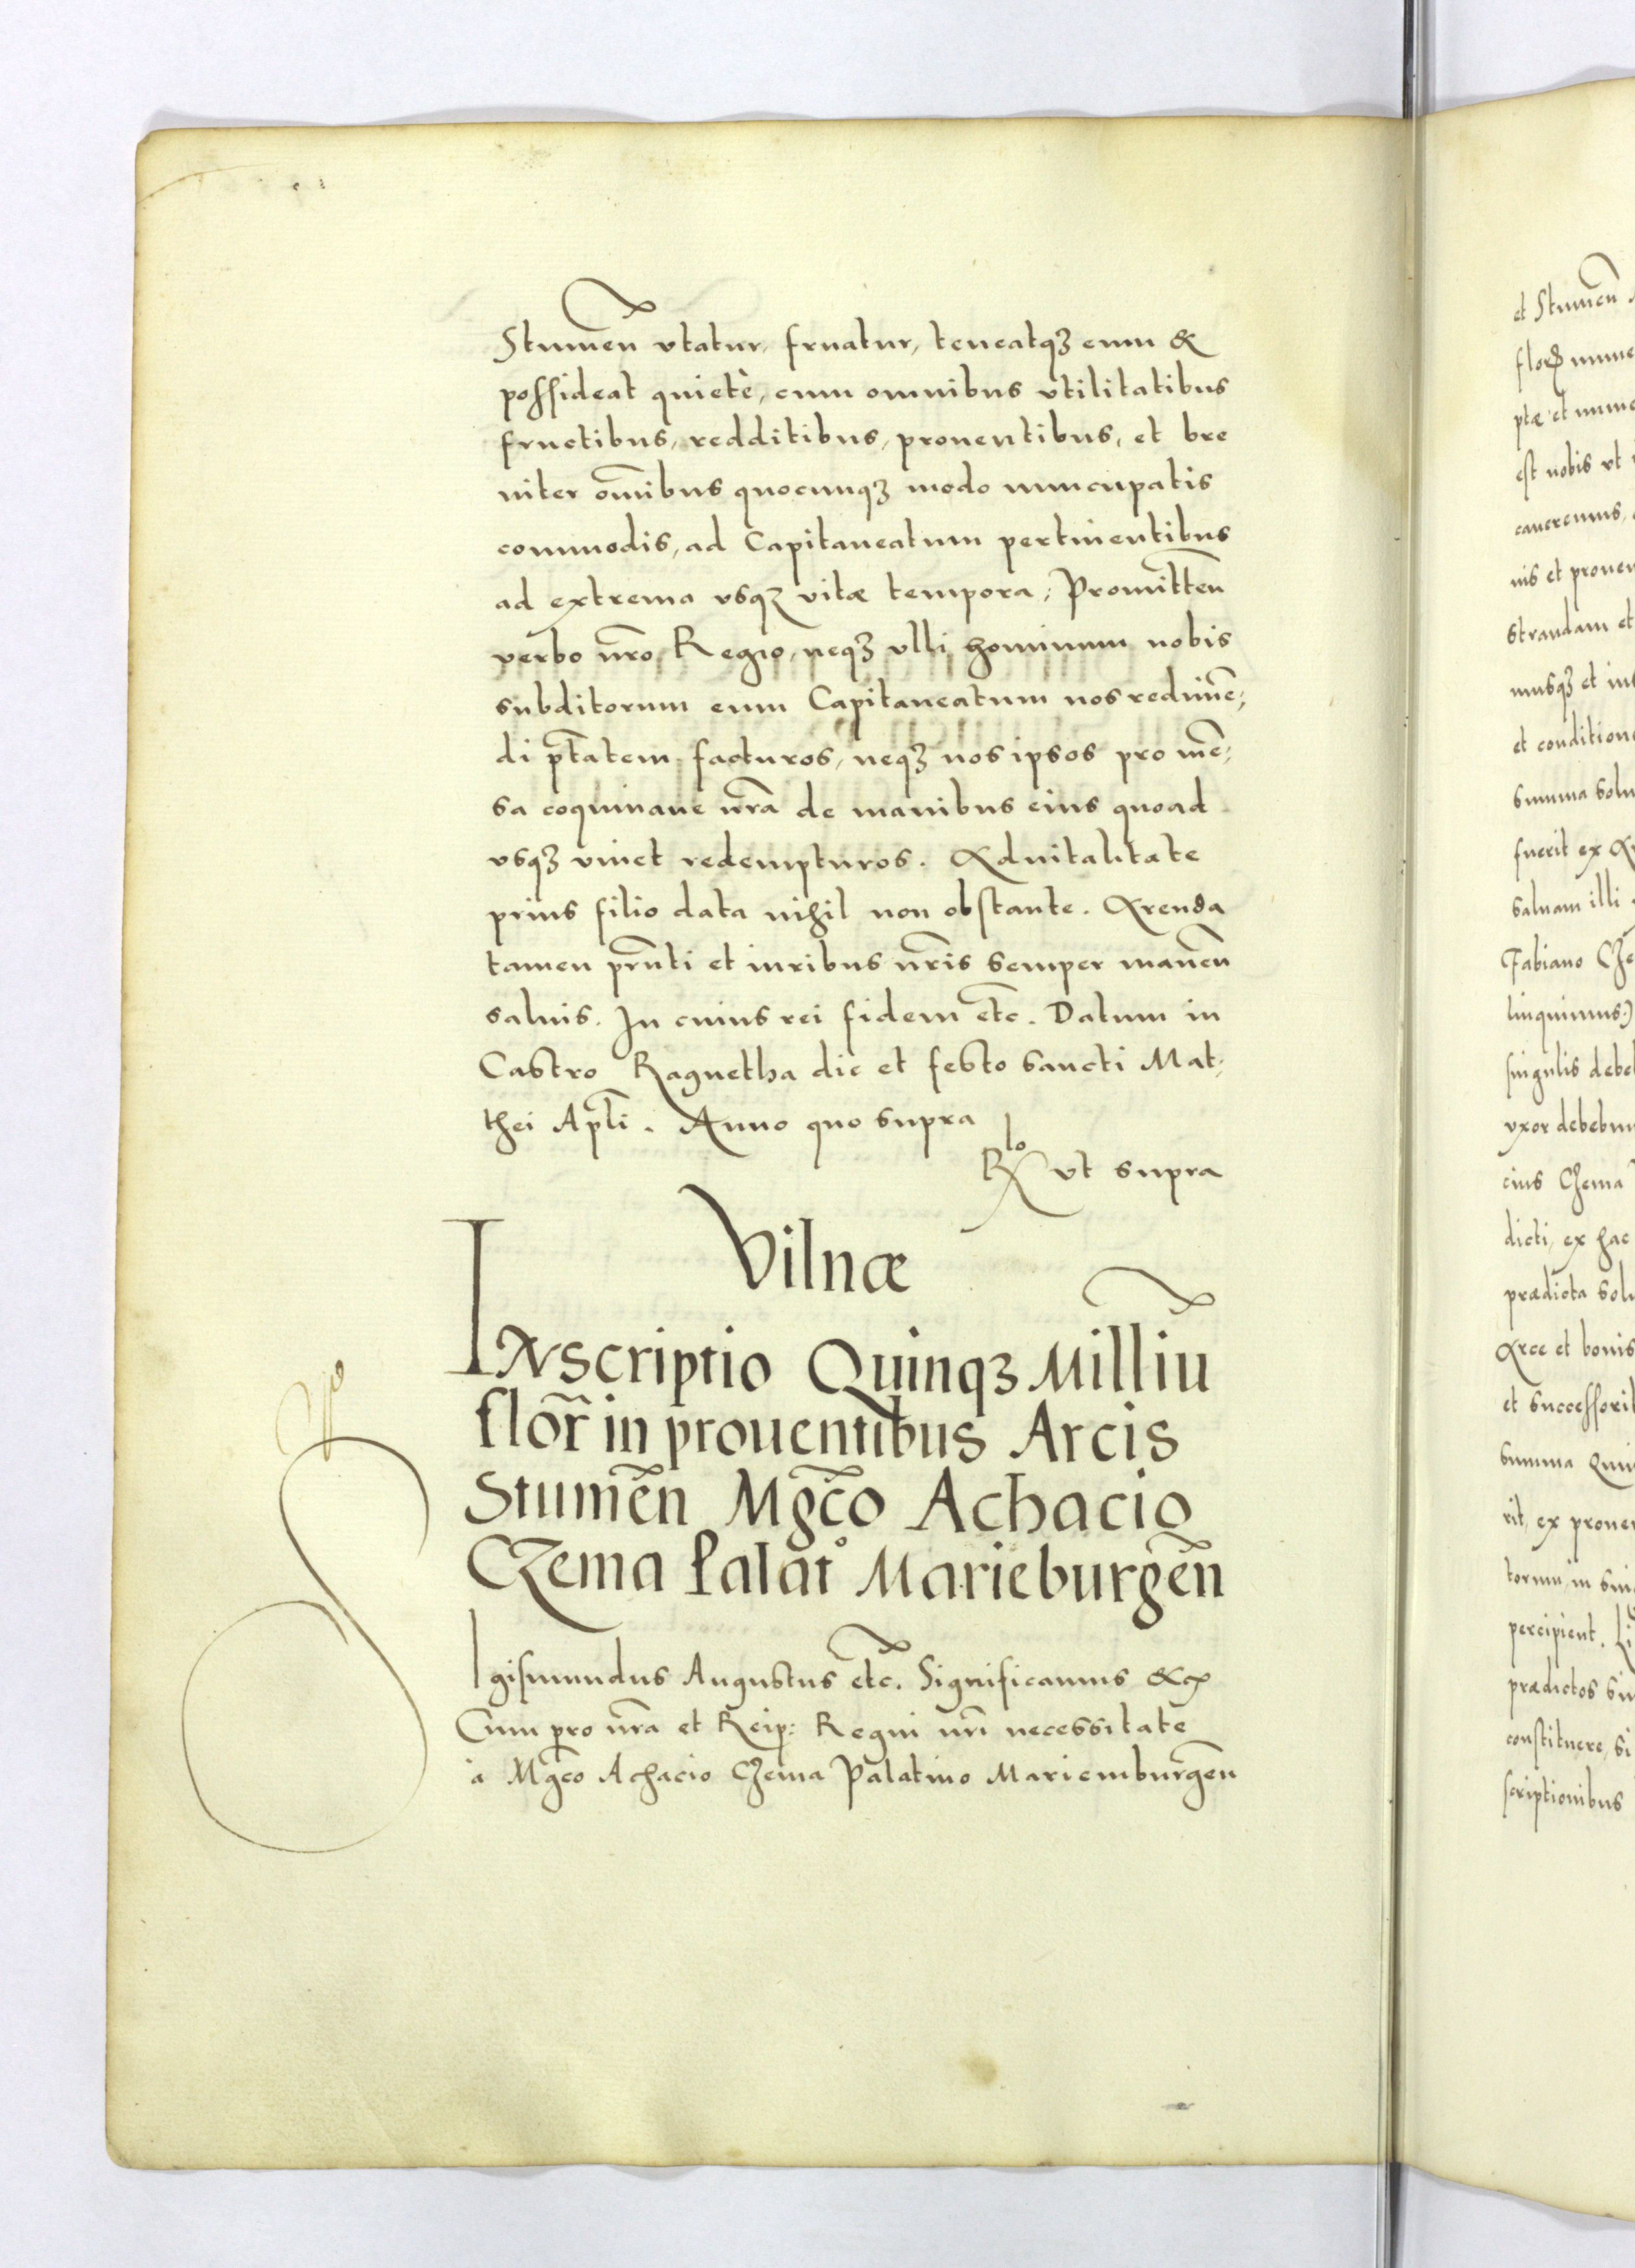 Stumen̄ vtatur, fruatur, teneatqꝫ eum &
possideat quietè, cum omnibus vtilitatibus
fructibus, redditibus, prouentibus, et bre
uiter om̄ibus quocunqꝫ modo nuncupatis
commodis, ad Capitaneatum pertinentibus
ad extrema vsqꝫ vitæ tempora, Promitten̄
verbo nr̄o Regio, neqꝫ vlli hominum nobis
subditorum eum Capitaneatum nos redimē,
di ptātem facturos, neqꝫ nos ipsos pro mē,
sa coquinaue nr̄a de manibus eius quoad
vsqꝫ viuet redempturos. Aduitalitate
prius filio data nihil non obstante. Arenda
tamen prn̄ti et iuribus nr̄is semper manen̄
saluis. In cuius rei fidem etc̄. Datum in
Castro Ragnetha die et festo sancti Mat,
thei Apl̄i. Anno quo supra
Rlo ut supra
Vilnæ
Inscriptio Quinqꝫ Milliū
flor̄ in prouentibus Arcis
Stumen̄ Mgc̄o Achacio
Czema Palat° Marieburgen̄
Sigismundus Augustus etc̄. Significamus &c
Cum pro nr̄a et Reip: Regni nr̄i necessitate
à Mgc̄o Achacio Czema Palatino Mariemburgen̄
et Stumen̄
est nobis vt
caueremus,
strandam et
musqꝫ et
et condition
summa solu
fuerit ex
saluam illi
Fabiano Cze
linquimus:)
singulis debe
vxor debebun
cius Czema
dicti, ex hac
prædicta solu
Arce et bonis
et successorib
summa Quin
rit, ex prouen
percipient.
prædictos
constituere, si
scriptionibus